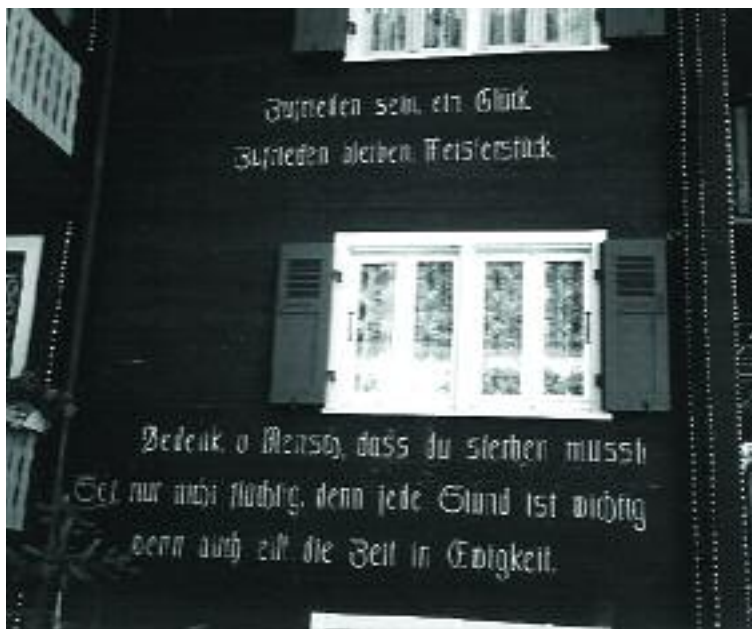 Zufrieden sein, ein Glück
Zufrieden bleiben, Meisterstück
Bedenk, o Mensch, dass du sterben musst
Sei nur nicht flüchtig, denn jede Stund ist wichtig
wenn auch eilt die Zeit in Ewigkeit.